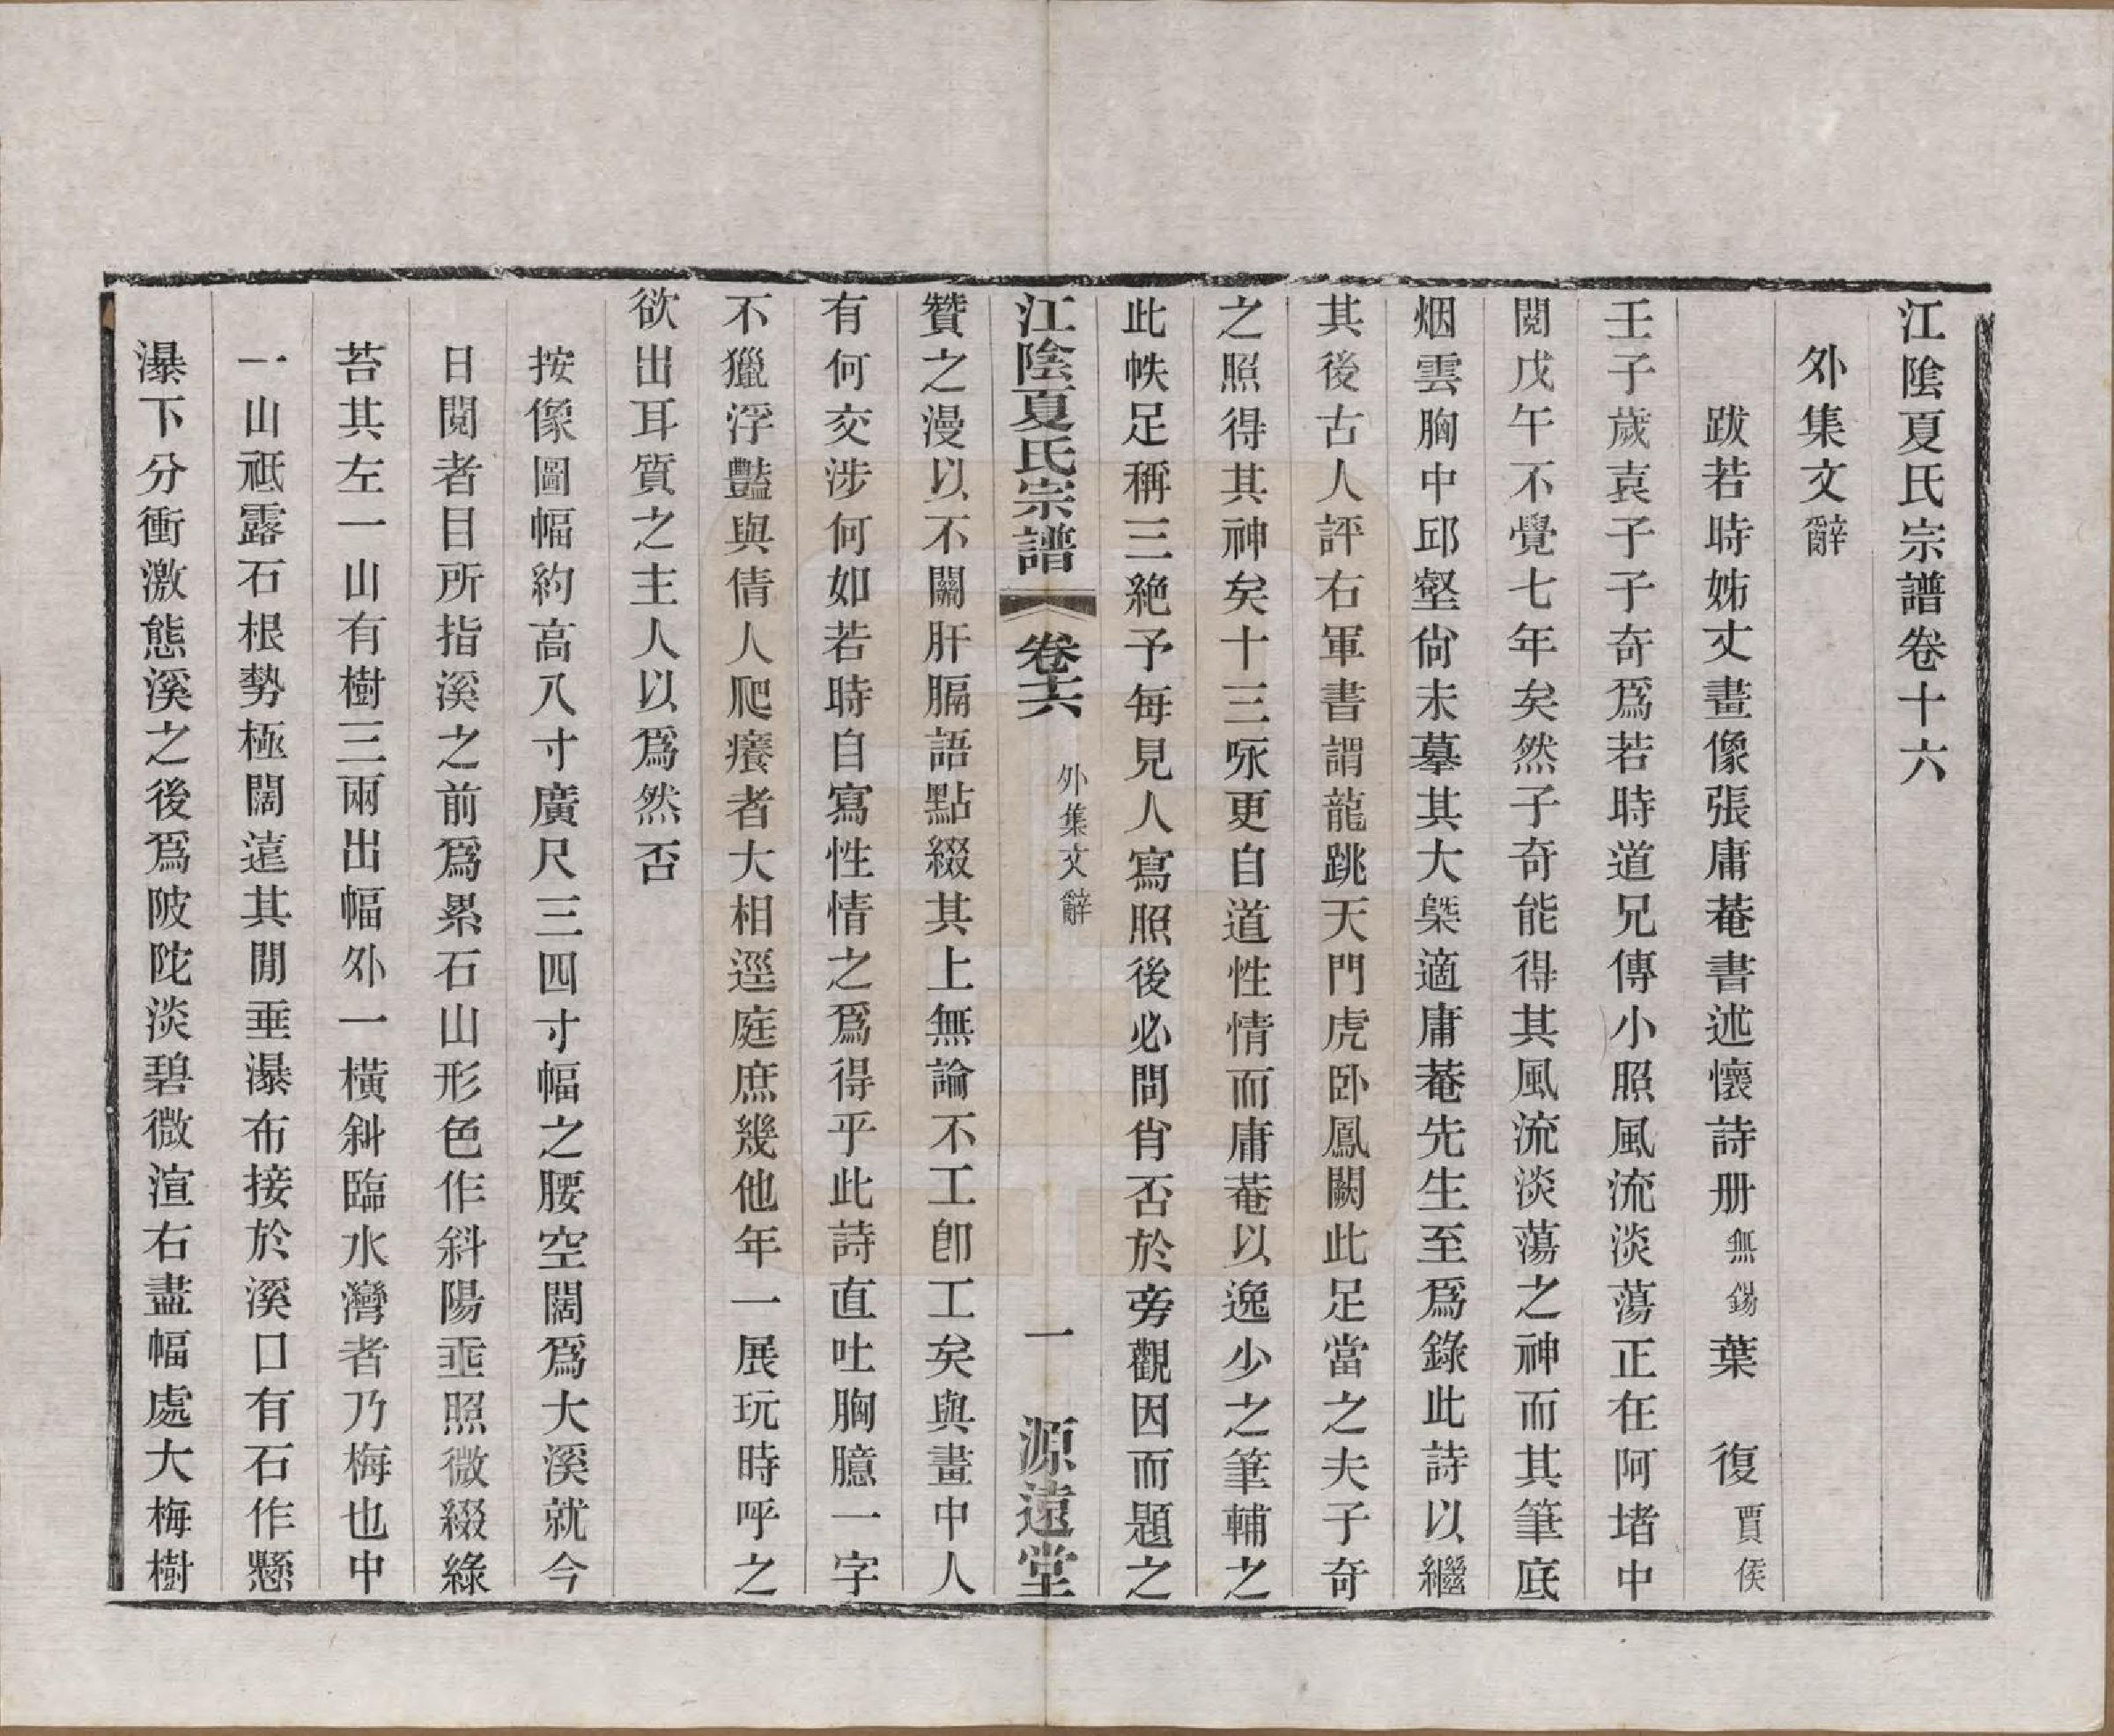 江陰夏氏宗譜卷十六
外集文辭
跋若時姊丈畫像張庸菴書述懷詩册 無錫 葉 復 賈侯
壬子歲袁子子奇爲若時道兄傳小照風流淡蕩正在阿堵中
閱戊午不覺七年矣然子奇能得其風流淡蕩之神而其筆底
烟雲胸中邱壑尙未摹其大槩適庸菴先生至爲錄此詩以繼
其後古人評右軍書謂龍跳天門虎卧鳳闕此足當之夫子奇
之照得其神矣十三咏更自道性情而庸菴以逸少之筆輔之
此帙足稱三絶予每見人寫照後必問肖否於旁觀因而題之
江陰夏氏宗譜 卷十六 外集文辭 一 源遠堂
贊之漫以不關肝膈語點綴其上無論不工卽工矣與畫中人
有何交涉何如若時自寫性情之爲得乎此詩直吐胸臆一字
不獵浮豔與倩人爬癢者大相逕庭庶幾他年一展玩時呼之
欲出耳質之主人以爲然否
按像圖幅約高八寸廣尺三四寸幅之腰空闊爲大溪就今
日閱者目所指溪之前爲累石山形色作斜陽垂照微綴綠
苔其左一山有樹三兩出幅外一橫斜臨水灣者乃梅也中
一山祇露石根勢極闊遠其閒垂瀑布接於溪口有石作懸
瀑下分衝激態溪之後爲陂陀淡碧微渲右盡幅處大梅樹